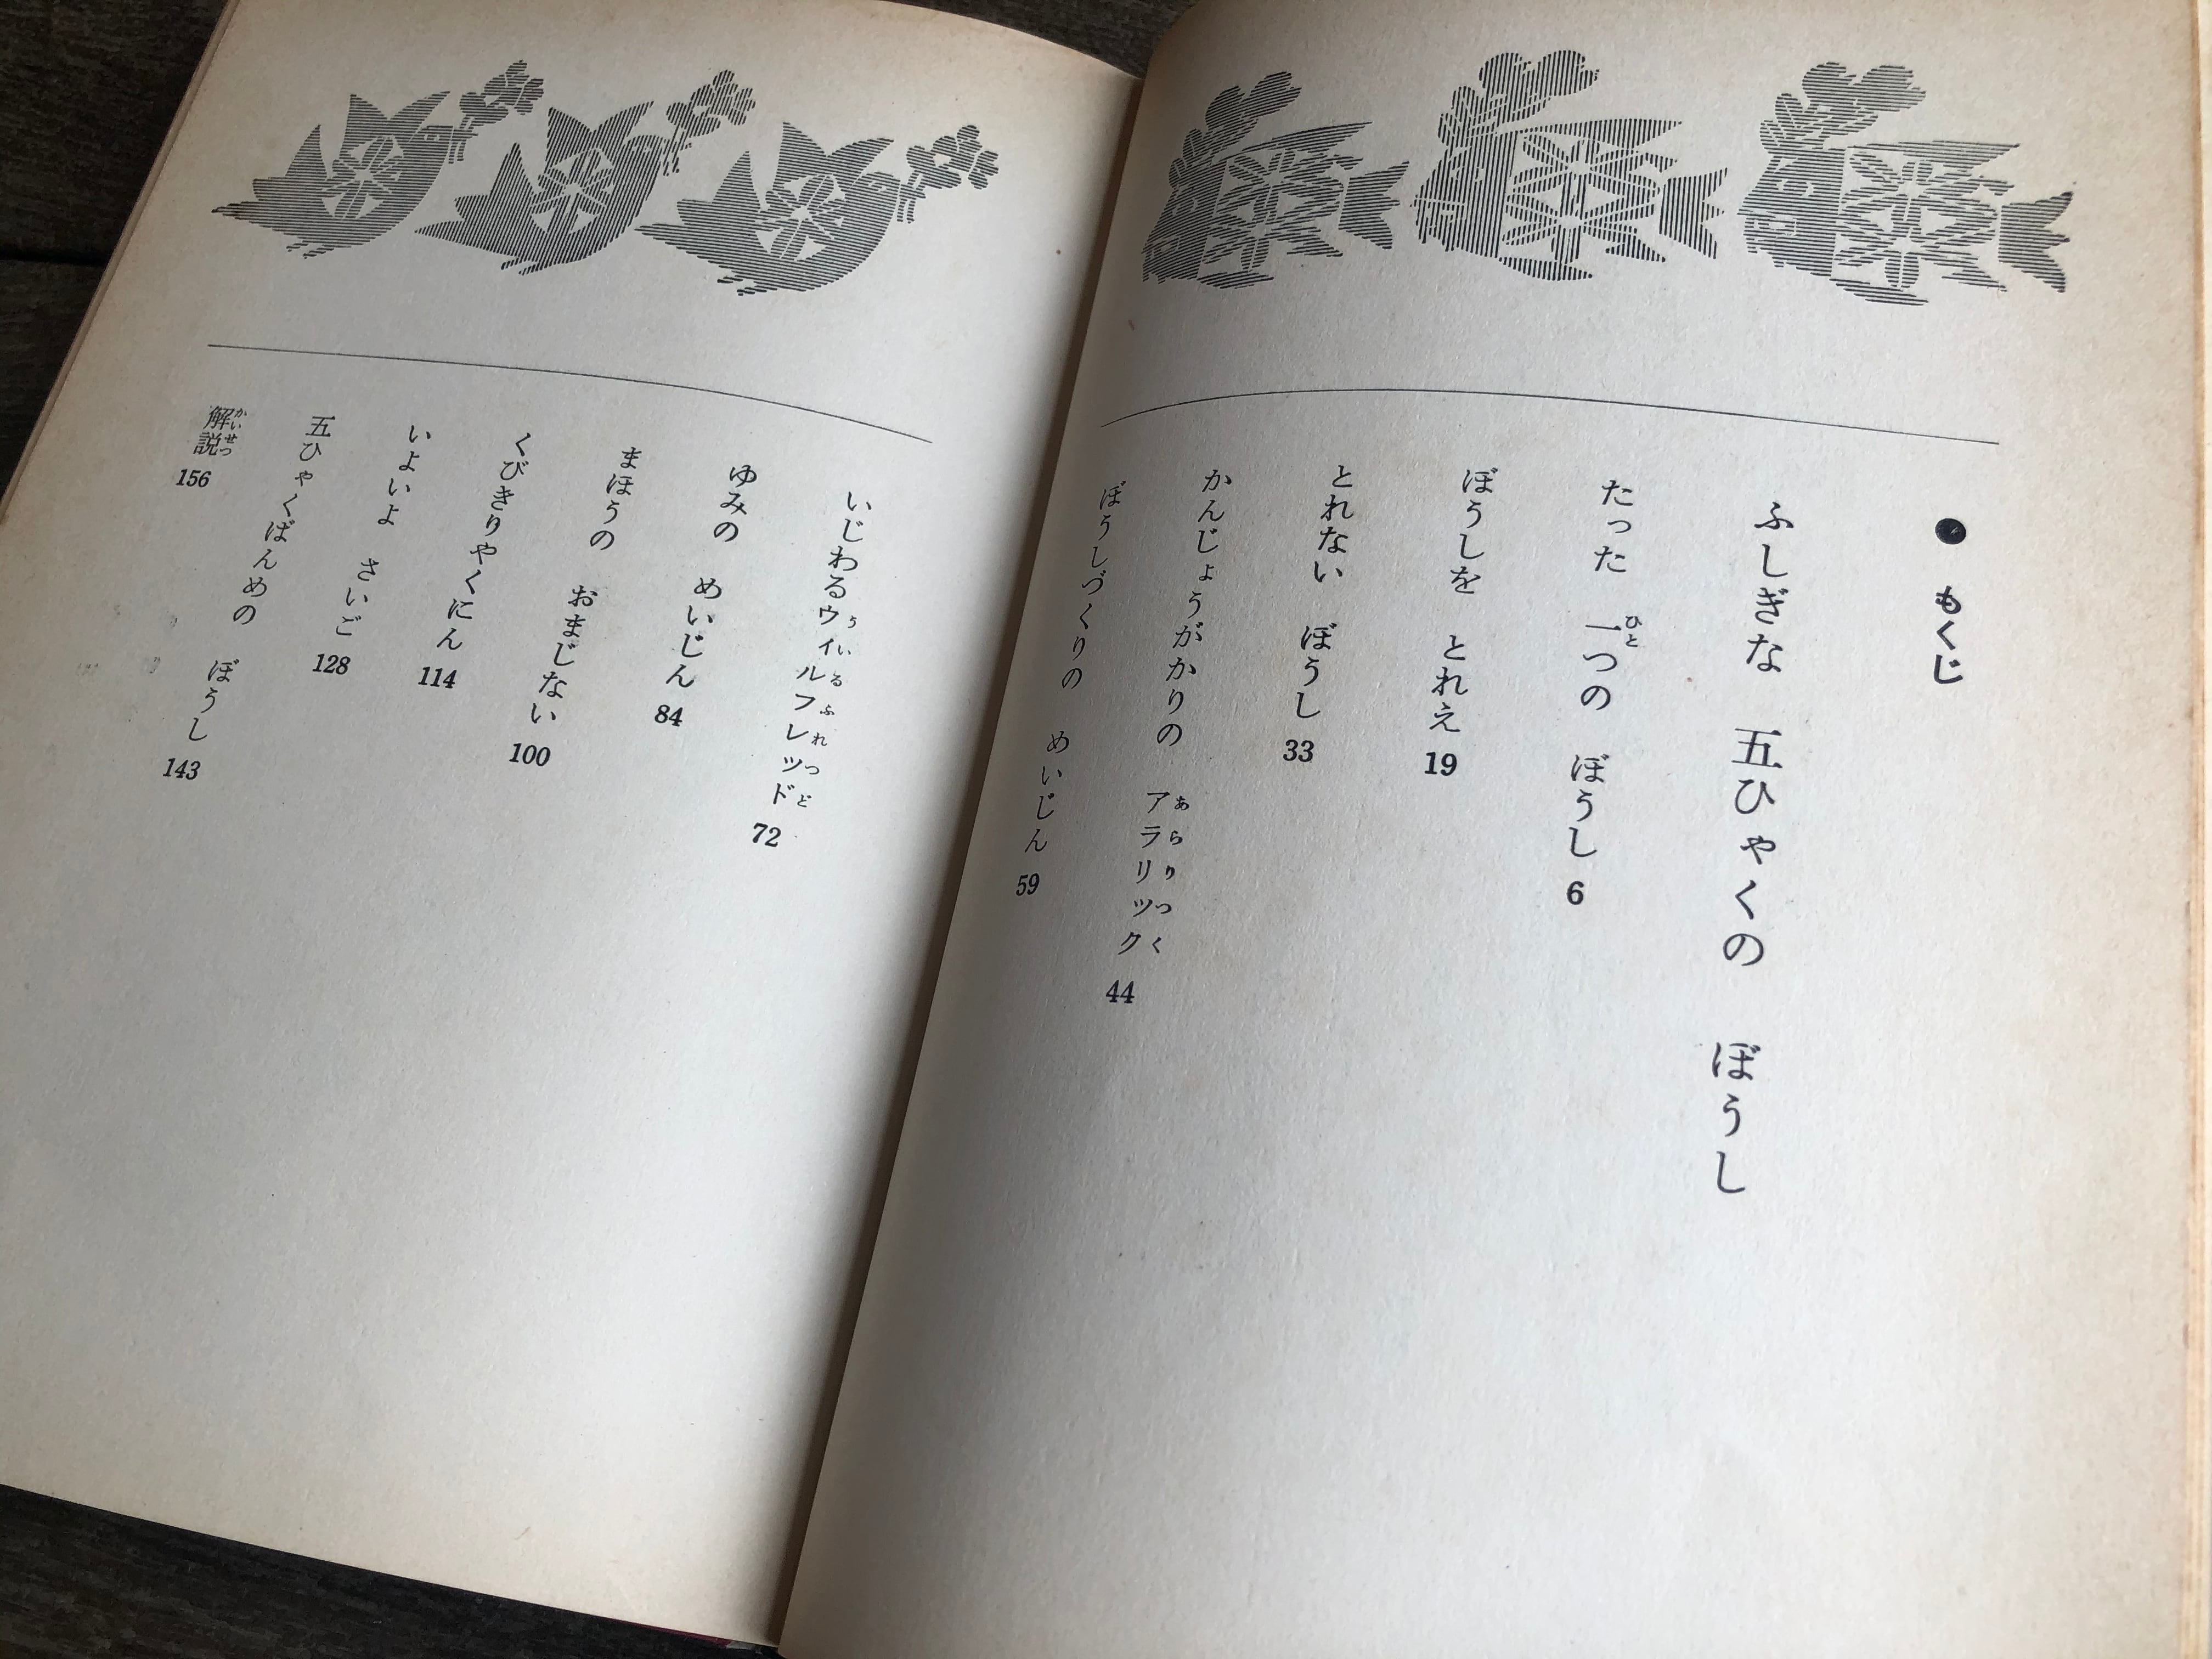 ● もくじ
ふしぎな 五ひゃくの ぼうし
たった 一つの ぼうし 6
ひと
ぼうしを とれえ 19
とれない ぼうし 33
かんじょうがかりの アラリック 44
あらりつく
ぼうしづくりの めいじん 59
いじわるウイルフレッド 72
ういるふれつど
ゆみの めいじん 84
まほうの おまじない 100
くびきりやくにん 114
いよいよ さいご 128
五ひゃくばんめの ぼうし 143
解説 156
かいせつ